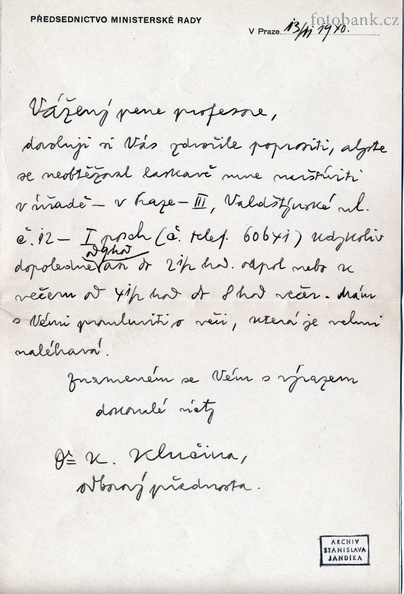 PŘEDSEDNICTVO MINISTERSKÉ RADY
fotobank.cz
V Praze 13/II 1940.
Vážený pane profesore,
dovoluji si Vás zdvořile poprositi, abyste
se neobtěžoval laskavě mne navštíviti
v úřadě – v Praze – III, Valdštýnská ul.
č. 12 – I posch (č. telef. 60641) kdykoliv
od 9 hod
dopoledne až do 2 1/2 hod. odpol nebo k
večeru od 4 1/2 hod do 8 hod večer. Mám
s Vámi promluviti o věci, která je velmi
naléhavá.
Znamenám se Vám s výrazem
dokonalé úcty
Dr K. Klučina,
odborový přednosta.
ARCHIV
STANISLAVA
JANDÍKA